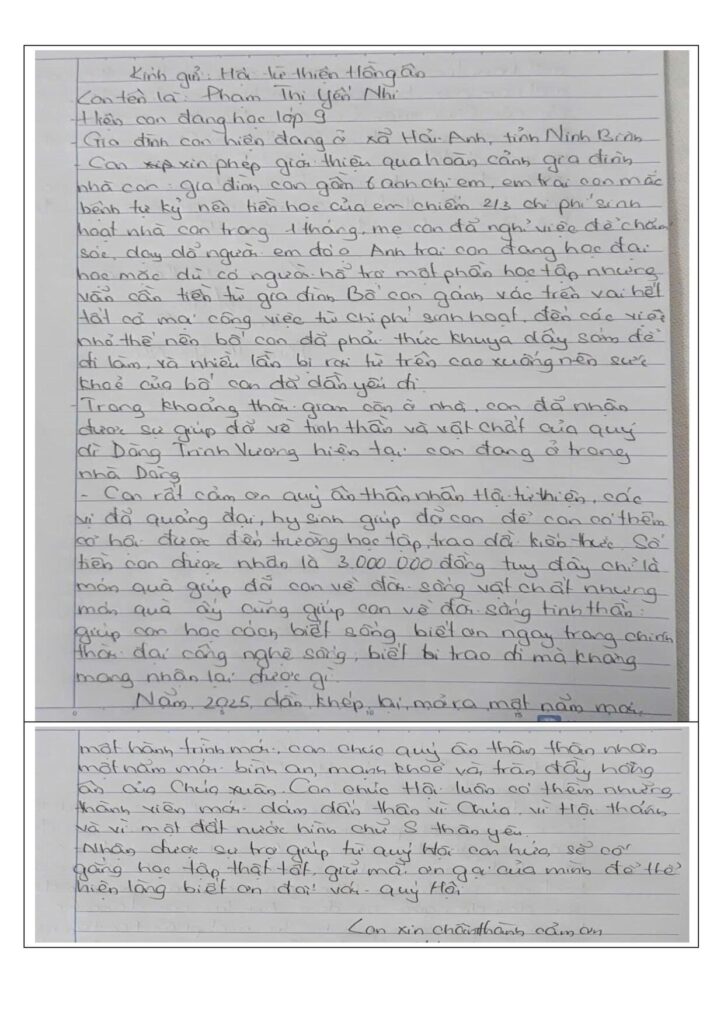 Kính gửi: Hội từ thiện Hồng ân
Con tên là: Phạm Thị Yến Nhi
Hiện con đang học lớp 9
- Gia đình con hiện đang ở xã Hải Anh, tỉnh Ninh Bình
- Con xin phép giới thiệu qua hoàn cảnh gia đình
nhà con: gia đình con gồm 6 anh chị em, em trai con mắc
bệnh tự kỷ nên tiền học của em chiếm 2/3 chi phí sinh
hoạt nhà con trong 1 tháng, mẹ con đã nghỉ việc để chăm
sóc, dạy dỗ người em đó. Anh trai con đang học đại
học mặc dù có người hỗ trợ một phần học tập nhưng
vẫn cần tiền từ gia đình Bố con gánh vác trên vai hết
tất cả mọi công việc từ chi phí sinh hoạt, đến các việc
nhỏ thế nên bố con đã phải thức khuya dậy sớm để
đi làm, và nhiều lần bị rơi từ trên cao xuống nên sức
khoẻ của bố con đã dần yếu đi.
- Trong khoảng thời gian còn ở nhà, con đã nhận
được sự giúp đỡ về tinh thần và vật chất của quý
dì Dòng Trinh Vương hiện tại con đang ở trong
nhà Dòng
- Con rất cảm ơn quý ân thân nhân Hội từ thiện, các
vị đã quảng đại, hy sinh giúp đỡ con để con có thêm
cơ hội được đến trường học tập, trao dồi kiến thức. Số
tiền con được nhận là 3.000.000 đồng tuy đây chỉ là
món quà giúp đỡ con về đời sống vật chất nhưng
món quà ấy cũng giúp con về đời sống tinh thần:
giúp con học cách biết sống biết ơn ngay trong chính
thời đại công nghệ sống, biết bị trao đi mà không
mong nhân lại được gì.
Năm 2025, dần khép lại, mở ra một năm mới,
một hành trình mới, con chúc quý ân thân thân nhân
một năm mới bình an, mạnh khoẻ và tràn đầy hồng
ân của Chúa xuân. Con chúc Hội luôn có thêm những
thành viên mới dám dấn thân vì Chúa, vì Hội thánh
và vì một đất nước hình chữ S thân yêu.
- Nhận được sự trợ giúp từ quý Hội con hứa, sẽ cố
gắng học tập thật tốt, giữ mãi ơn gọi của mình để thể
hiện lòng biết ơn đối với quý Hội
Con xin chân thành cảm ơn